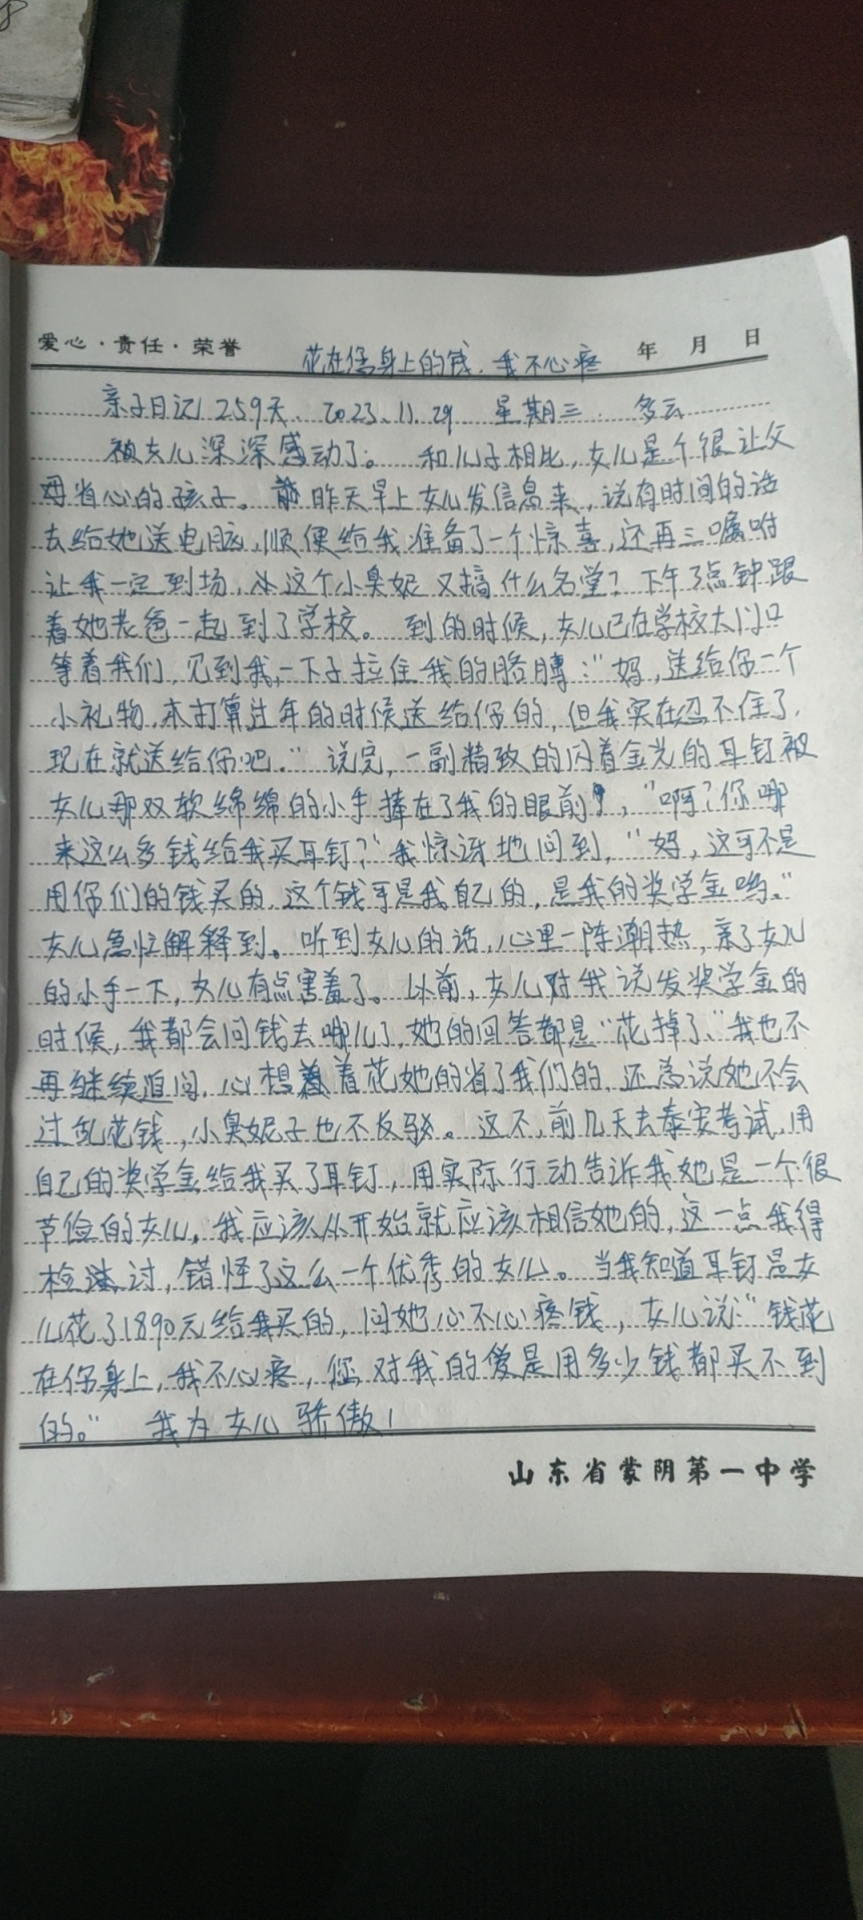 8
爱心·责任·荣誉
花在您身上的钱，我不心疼
年 月 日
亲子日记259天 2023.11.29 星期三 多云
被女儿深深感动了。和儿子相比，女儿是个很让父
母省心的孩子。昨天早上女儿发信息来，说有时间的话
去给她送电脑，顺便给我准备了一个惊喜，还再三嘱咐
让我一定到场，这个小臭妮又搞什么名堂？下午3点钟跟
着她老爸一起到了学校。到的时候，女儿已在学校大门口
等着我们，见到我，一下子拉住我的胳膊：“妈，送给你一个
小礼物，本打算过年的时候送给你的，但我实在忍不住了，
现在就送给你吧。”说完，一副精致的闪着金光的耳钉被
女儿那双软绵绵的小手捧在了我的眼前，“啊？你哪
来这么多钱给我买耳钉？”我惊讶地问到，“妈，这可不是
用你们的钱买的，这个钱可是我自己的，是我的奖学金哟。”
女儿急忙解释到。听到女儿的话，心里一阵潮热，亲了女儿
的小手一下，女儿有点害羞了。以前，女儿对我说发奖学金的
时候，我都会问钱去哪儿了，她的回答都是“花掉了”，我也不
再继续追问，心想着花她的省了我们的，还总说她不会
过乱花钱，小臭妮子也不反驳。这不，前几天去泰安考试，用
自己的奖学金给我买了耳钉，用实际行动告诉我她是一个很
节俭的女儿，我应该从开始就应该相信她的，这一点我得
检讨，错怪了这么一个优秀的女儿。当我知道耳钉是女
儿花了1890元给我买的，问她心不心疼钱，女儿说：“钱花
在你身上，我不心疼，您对我的爱是用多少钱都买不到
的。”我为女儿骄傲！
山东省蒙阴第一中学